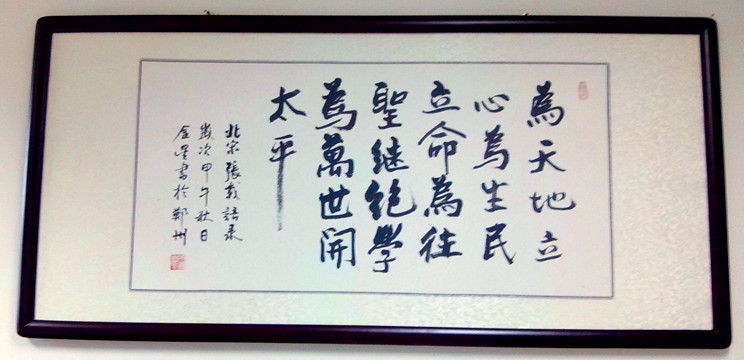 為天地立
心為生民
立命為往
聖繼絕學
為萬世開
太平
北宋張載語录
歲次甲午秋日
金星書於鄭州